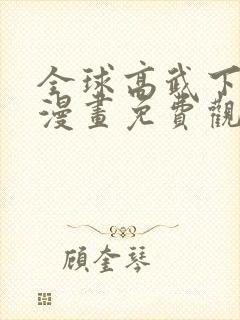 全球高武下
漫畫免費觀
顾奎琴